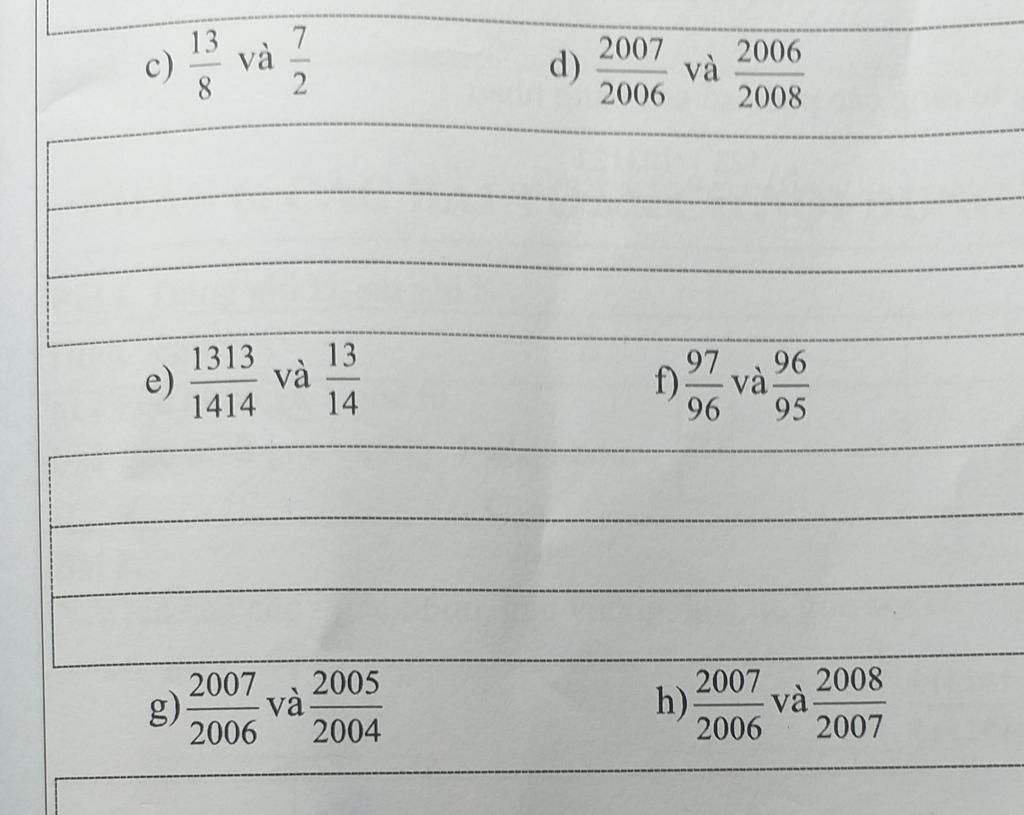 c) 13/8 và 7/2 d) 2007/2006 và 2006/2008
e) 1313/1414 và 13/14 f) 97/96 và 96/95
g) 2007/2006 và 2005/2004 h) 2007/2006 và 2008/2007